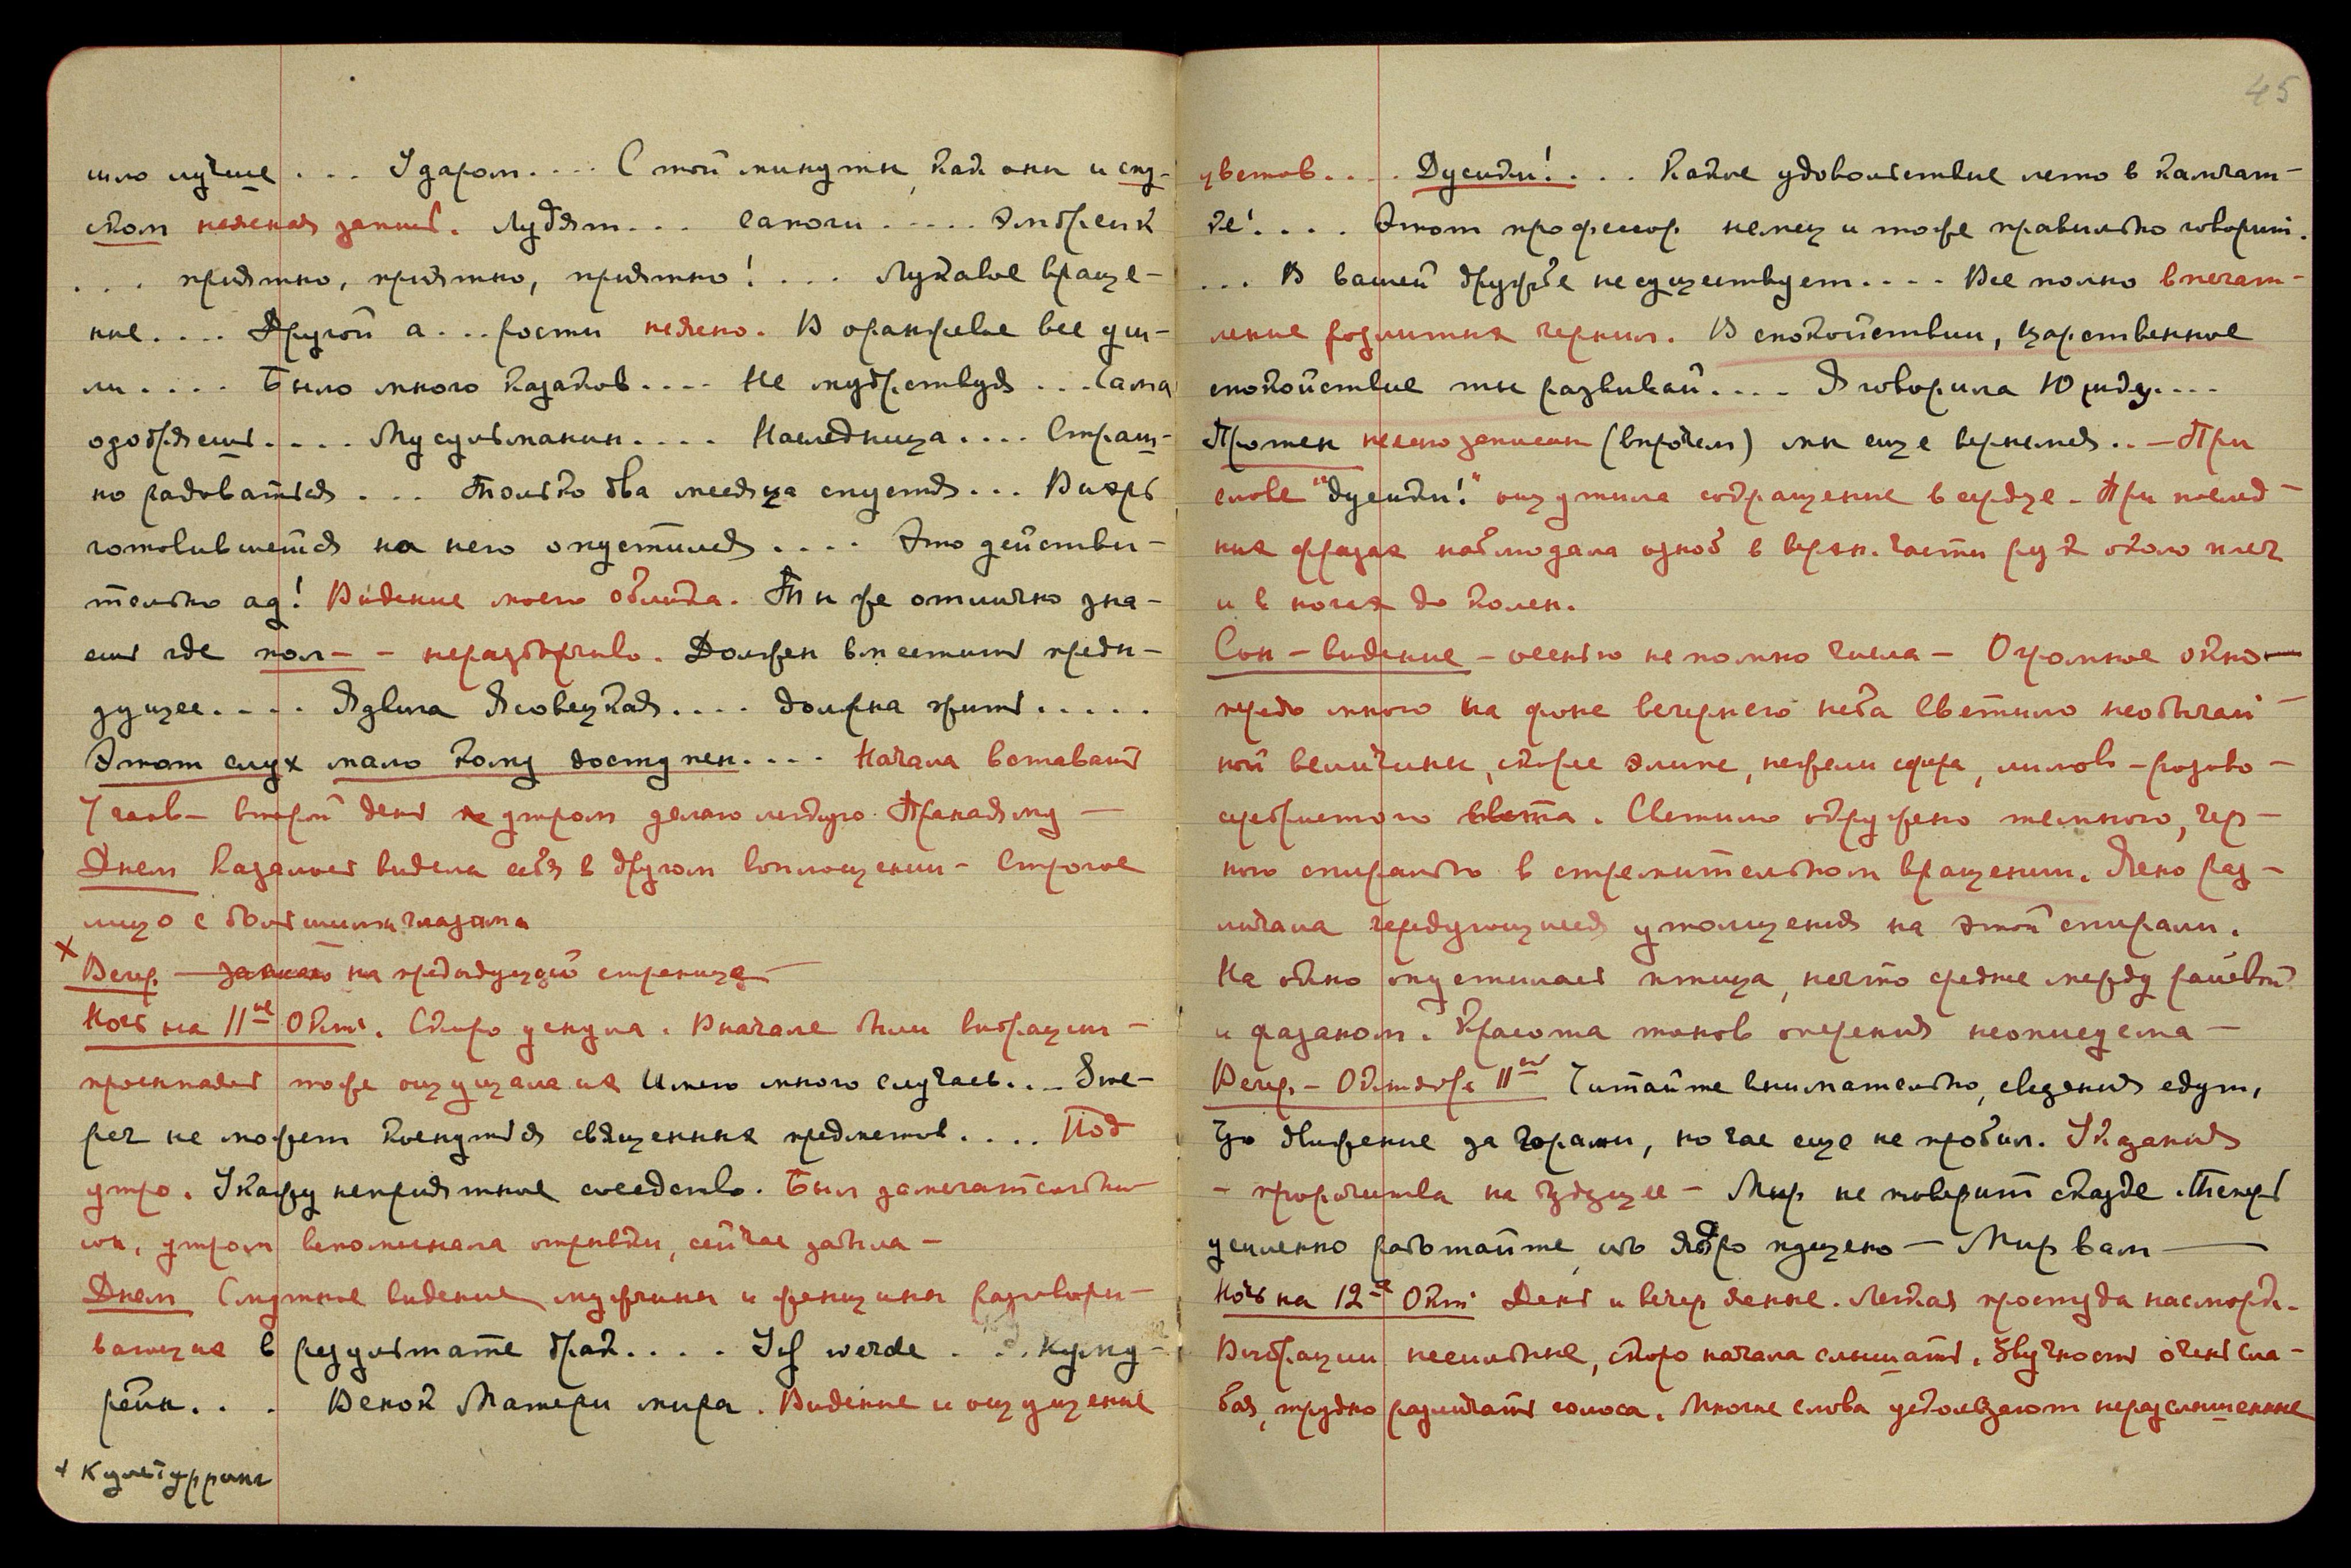 шло лучше . . . Ударом. . . . С той минуты, как они и спу-
ском неясная запись. Лудят... сапоги ..... Эмбрейк
. . . приятно, приятно, приятно! . . . Лукавое враще-
ние. . . . Другой а . . . рости неясно. В оранжевое все уш-
ли . . . . Было много казаков. . . . Не мудрствуя . . . Сама
одобряешь. . . . Мусульманин. . . . Наследница. . . . Страш-
но радоваться . . . Только два месяца спустя. . . Вихрь
готовившейся на него опустился . . . . Это действи-
тельно ад! Видение моего облика. Ты же отлично зна-
ешь где пол- - неразборчиво. Должен вместить преды-
дущее. . . . Ядвига Ясовецкая. . . . должна жить . . . . .
Этот слух мало кому доступен. . . . Начала вставать
7 часов - второй день утром делаю легкую Пранаяму -
Днем казалось видела себя в другом воплощении - строгое
лицо с большими глазами
х Вечер. - записано на предыдущей странице -
Ночь на 11ое Окт. Скоро уснула. Вначале были вибрации -
просыпаясь тоже ощущала их Имею много случаев. . . Эме-
рег не может коснуться священных предметов. . . . Под
утро. Укажу неприятное соседство. Был замечательный
сон, утром вспоминала отрывки, сейчас забыла -
Днем Смутное видение мужчины и женщины разговари-
вающих в результате брак. . . . Ich werde . . . курту-
рейн. . . Венок Матери мира. Видение и ощущение
+ Культурринг
45
цветов. . . . Дусики! . . . Какое удовольствие лето в Камчат-
ке! . . . . Этот профессор немец и тоже правильно говорит.
. . . В вашей дружбе не существует. . . . Все полно впечат-
ление розлитых чернил. В спокойствии, царственное
спокойствие ты развивай. . . . Я говорила Юрику. . . .
Протен неясно записан (впрочем) мы еще вернемся. . - При
слове "Дусики!" ощутила сокращение в сердце. При послед-
них фразах наблюдала озноб в верхн. части рук около плеч
и в ногах до колен.
Сон - видение - осенью не помню числа - Огромное окно -
предо мною на фоне вечернего неба Светило необычай-
ной величины, скорее эллипс, нежели сфера, лилово-розово-
серебристого света. Светило окружено темною, чер-
ною спиралью в стремительном вращении. Ясно раз-
личала чередующиеся утолщения на этой спирали.
На окно опустилась птица, нечто средне между райской
и фазаном. Красота тонов оперения неописуема -
Вечер - Октября 11ое Читайте внимательно, сведения едут,
Цо движение за горами, но час еще не пробил. Указания
- пророчества на будущее - Мир не поверит сказке. Теперь
усиленно работайте, ибо Ядро пущено - Мир вам -
Ночь на 12ое Окт. День и вечер ясные. Легкая простуда насморк.
Вибрации несильные, скоро начала слышать. Звучность очень сла-
бая, трудно различать голоса. Многие слова ускользают неуслышенные